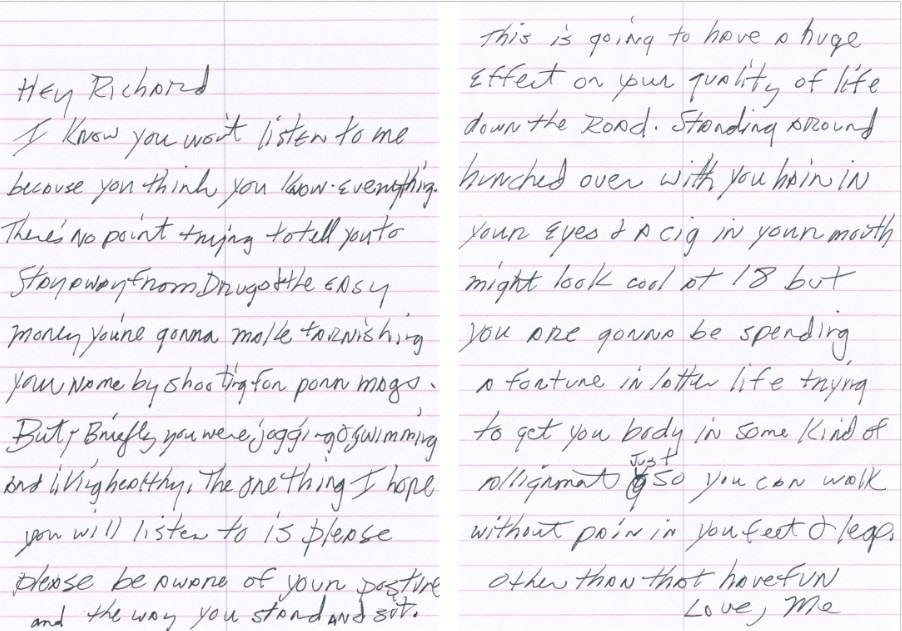 Hey Richard
I know you won't listen to me
because you think you know everything.
There's no point trying to tell you to
stay away from Drugs & the easy
money you're gonna make tarnishing
your name by shooting for porn mags.
But, Briefly you were, jogging & swimming
and living healthy. The one thing I hope
you will listen to is please
please be aware of your posture
and the way you stand and sit.
This is going to have a huge
effect on your quality of life
down the road. Standing around
hunched over with you hair in
your eyes & a cig in your mouth
might look cool at 18 but
you are gonna be spending
a fortune in latter life trying
to get you body in some kind of
allignment just so you can walk
without pain in you feet & legs.
Other than that have fun
Love, Me